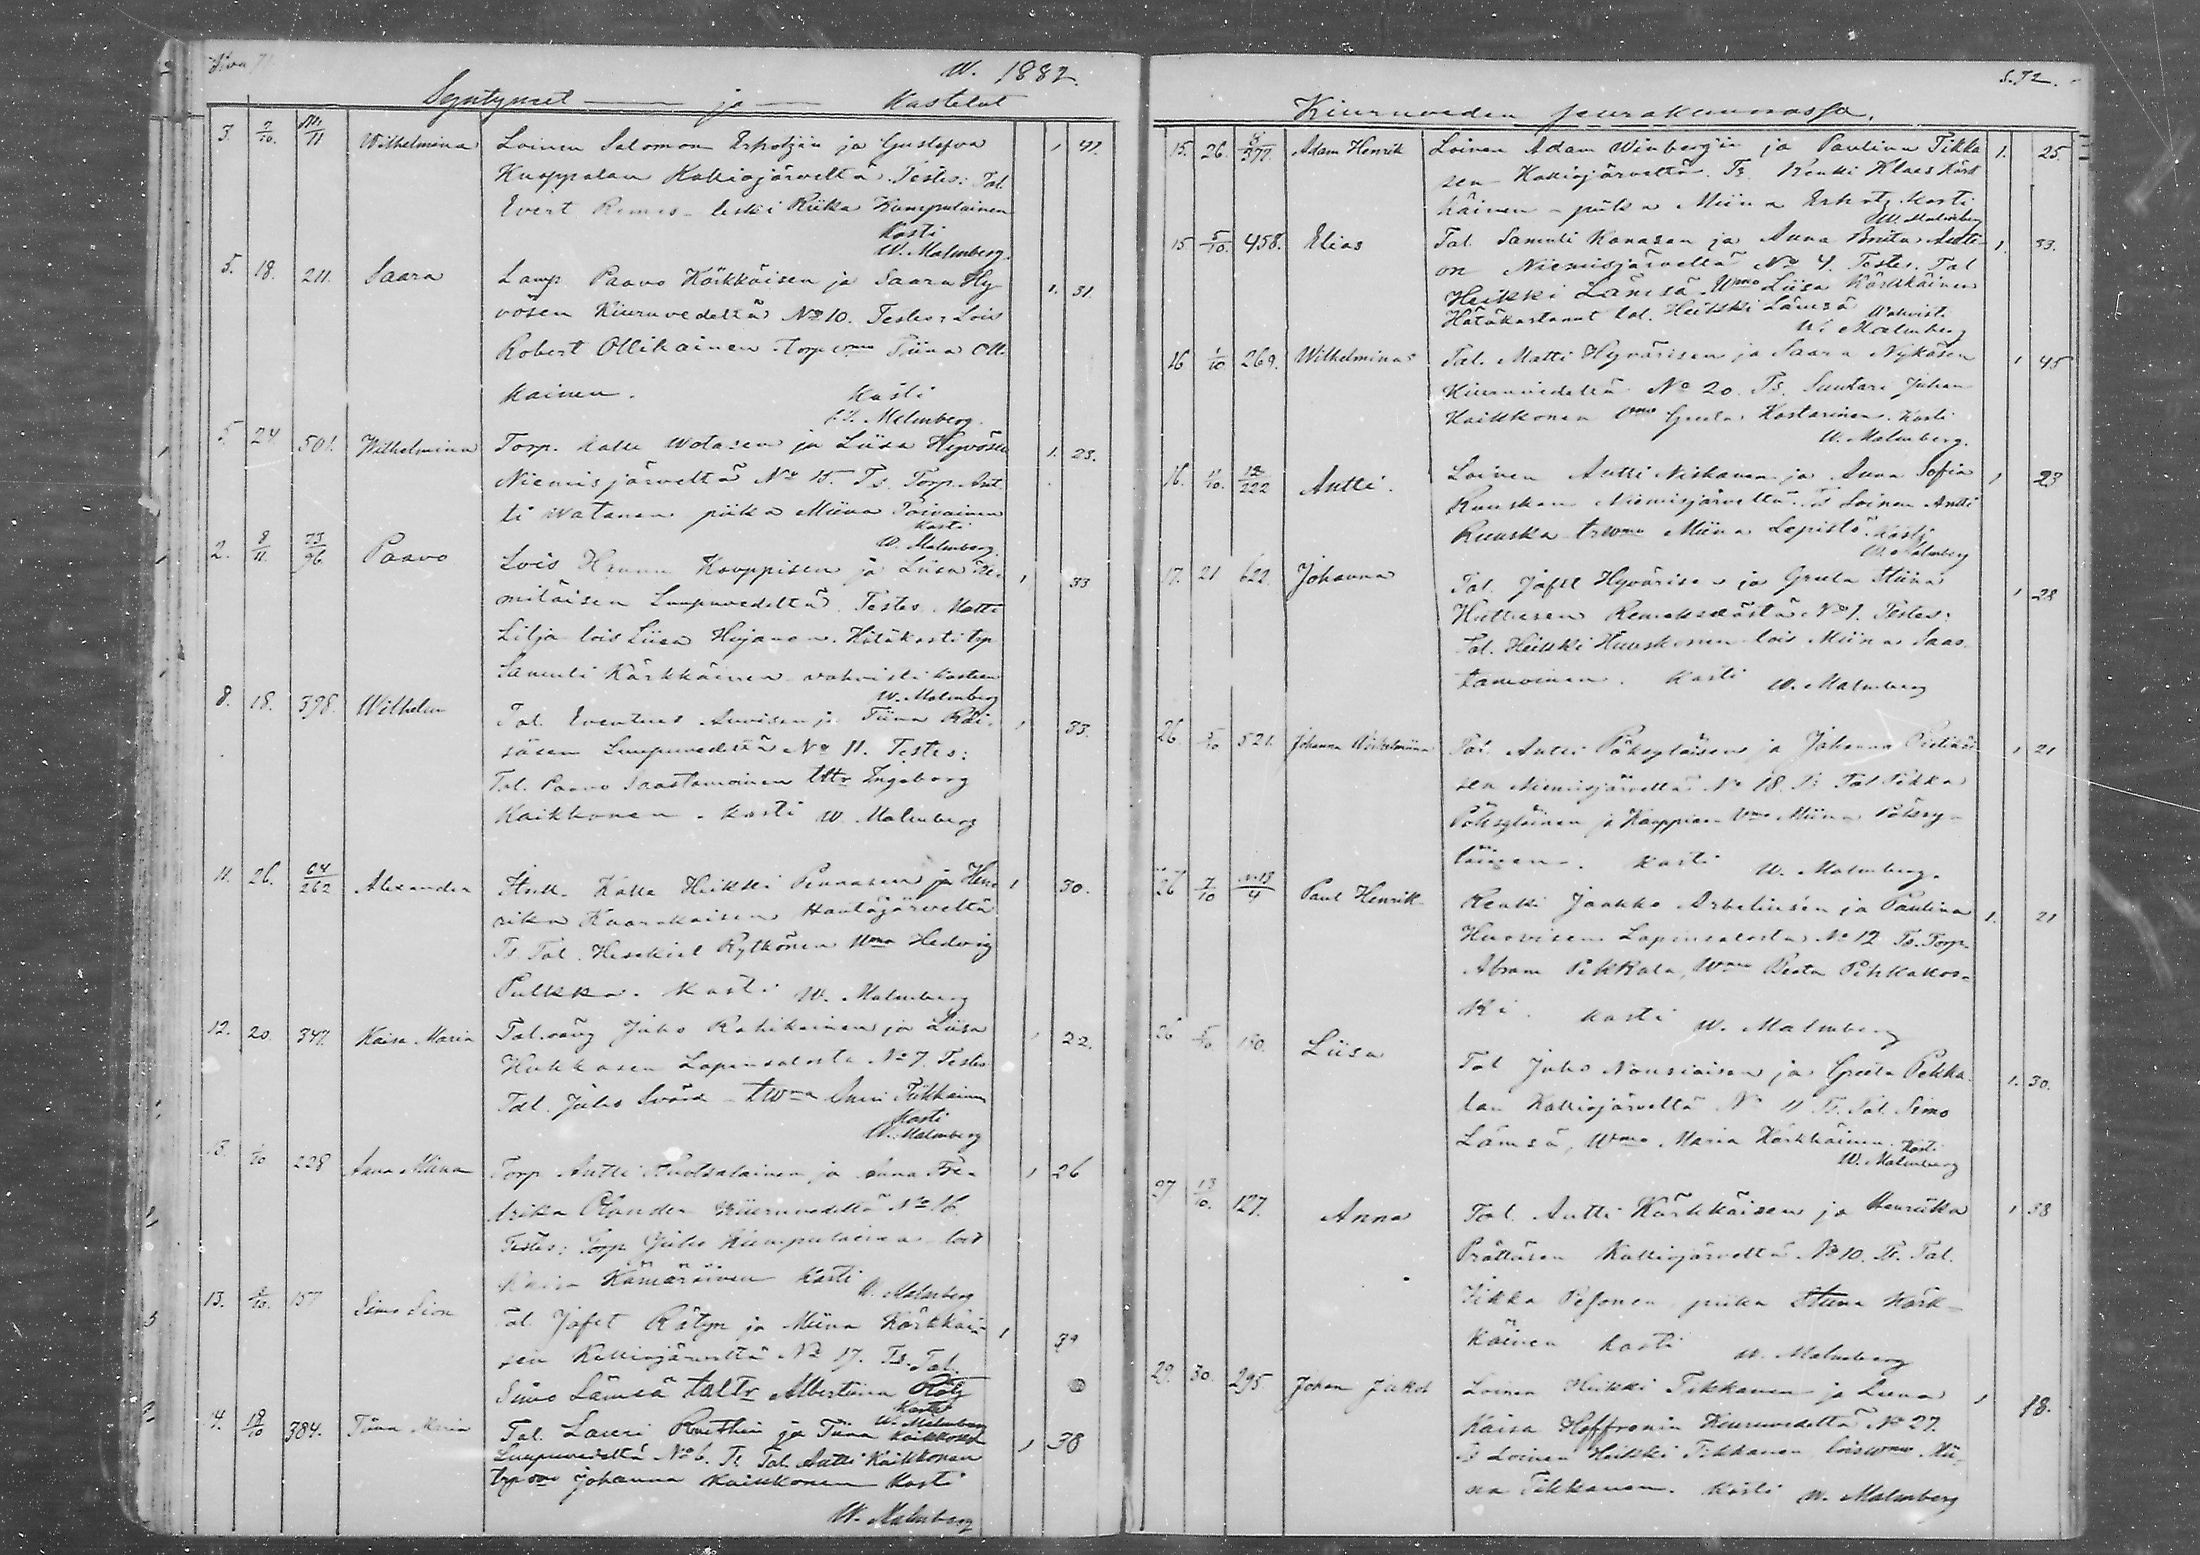 W. 1882.
Syntyneet ja Kastetut
3. 7/10. 11 Wilhelmina Loinen Salomon Erholzin ja Gustafva 1 41.
Kuoppalan Kalliojärveltä. Testes: Tal.
Evert Remes leski Riika Kumpulainen
Kasti
W. Malmberg.
5. 18. 211. Saara Lamp Paavo Kärkkäisen ja Saara Hy 1. 31.
vösen Kiuruvedeltä No 10. Testes: Lois
Robert Ollikainen Torp wmo Tiina Olli
kainen. Kasti
W. Malmberg.
5. 24 501. Wilhelmina Torp. Kalle Wotasen ja Liisa Hyvösen 1. 23.
Niemisjärveltä No 15. Ts. Torp. Ant
ti Watanen piika Miina Toivainen
Kasti
W. Malmberg.
2. 8/11. 73/96 Paavo Lois Hannu Kauppisen ja Liisa 1 33
miläisen Luupuvedeltä. Testes. Matti
Lilja lois Liisa Hujanen. Hätäkasti trp
Samuli Kärkkäinen vahvisti kasteen
W. Malmberg
8. 18. 398. Wilhelm Tal. Eventius Ja Tiina Räi 1 33.
säsen Luupuvedeltä No 11. Testes:
Tal. Paavo Saastamoinen tttr Ingeborg
Kaikkonen. Kasti W. Malmberg
11. 26. 64/262 Alexander Kalle Heikki Pennasen ja Hen 1 30.
rika Kaarakaisen Hautajärveltä
Ts. Tal. Hesekiel Rytkönen Wmo Hedvig
Pulkka. Kasti W. Malmberg
12. 20. 347. Kaisa Maria Tal. väng Juho Rahikainen ja Liisa 1 22.
Hukkasen Lapinsalosta No 7. Testes
Tal. Juho Svärd tWmo Anni Tikkainen
Kasti
W. Malmberg
13. 1/10 228 Anna Miina Torp Antti Huolsalainen ja Anna Fre 1 26
drika Olander Kiuruvedeltä No 16.
Testes: Torp Juho Kumpulainen lois
Kaisa Kämäräinen Kasti
W. Malmberg
13. 157 Simo Sion Tal. Jafet Rätyn ja Miina Kärkkäi 1 39
sen Kalliojärveltä No 17. Ts. Tal.
Simo Lämsä taltr Albertiina Räty
Kasti
W. Malmberg
384. Tiina Maria Tal. Lauri Ruuthin ja Tiina Kaikkosen 1 38
Luupuvedeltä No 6. Ts Tal. Antti Kaikkonen
trp Johanna Kaikkonen Kasti
W. Malmberg
S. 72.
Kiuruveden seurakunnassa.
15. 26. 8/371. Adam Henrik Loinen Adam Winbergin ja Paulina Tikka 1. 25.
sen Kalliojärveltä. Ts. Renki Klaes Kärk
käinen piika Miina Erholz Kasti
W. Malmberg
15 5/10. 458. Elias Tal. Samuli Kanasen ja Anna Brita Antti 1. 33.
on Niemisjärveltä No 4. Testes. Tal
Heikki Lämsä Wmo Liisa Kärkkäinen
Hätäkastanut tal. Heikki Lämsä Wahvisti
W. Malmberg
16 1/10 269. Wilhelmina Tal. Matti Hyvärisen ja Saara Nykäsen 1 45
Kiuruvedeltä No 20. Ts. Suutari Juhan
Kaikkonen Wmo Greeta Kastarinen Kasti
W. Malmberg.
16. 1/10. 12/222 Antti. Loinen Antti Niskanen ja Anna Sofia 1 23
Ruuskan Niemisjärveltä. Ts Loinen Antti
Ruuska trwmo Miina Lepistö. Kasti
W. Malmberg
17. 21 622 Johanna Tal. Jafet Hyvärisen ja Greeta Stiina 1 28
Huttusen Remeskylästä No 1. Testes:
Tal. Heikki Huuskonen lois Miina Saas
tamoinen. Kasti W. Malmberg
26. 5/10 521. Johanna Wilhelmiina Tal. Antti Pöksyläisen ja Johanna 1 21
sen Niemisjärveltä No 18. Ts Tal Pekka
Pöksyläinen ja Kauppias Vmo Miina Pöksy
läinen. Kasti W. Malmberg.
26 7/10 No 19/4 Paul Henrik Renki Jaakko Arbeliusen ja Paulina 1. 21
Huovisen Lapinsalosta No 12 Ts. Torp.
Abram Pikkala, Wmo Beata Pihkakos-
ki. Kasti W. Malmberg
26 5/10. 190. Liisa Tal Juho Nousiaisen ja Greeta Pekka 1. 30.
lan Kalliojärveltä No 11 Ts. Tal Simo
Lämsä, Wmo Maria Kärkkäinen. Kasti
W. Malmberg
27 13/10. 127. Anna Tal. Antti Kärkkäisen ja Henriika 1 38
Prättäsen Kalliojärveltä No 10. Ts. Tal.
Pekka Pesonen piika Stiina Kärk-
käinen Kasti W. Malmberg
29. 30. 295 Johan Jakob Loinen Heikki Tikkanen ja Leena 1 18.
Kaisa Hoffrenin Kiuruvedeltä No 27.
Ts Loinen Heikki Tikkanen loiswmo Mii
na Tikkanen. Kasti W. Malmberg